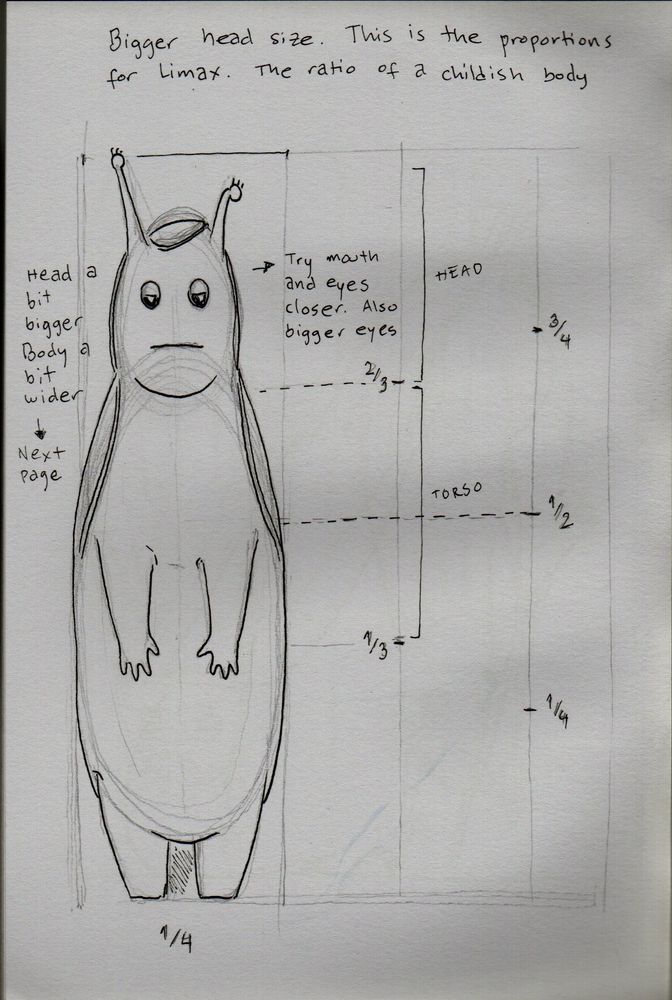 Bigger head size. This is the proportions
for Limax. The ratio of a childish body
Head a
bit
bigger
Body a
bit
wider
Next
page
Try mouth
and eyes
closer. Also
bigger eyes
HEAD
3/4
2/3
TORSO
1/2
1/3
1/4
1/4